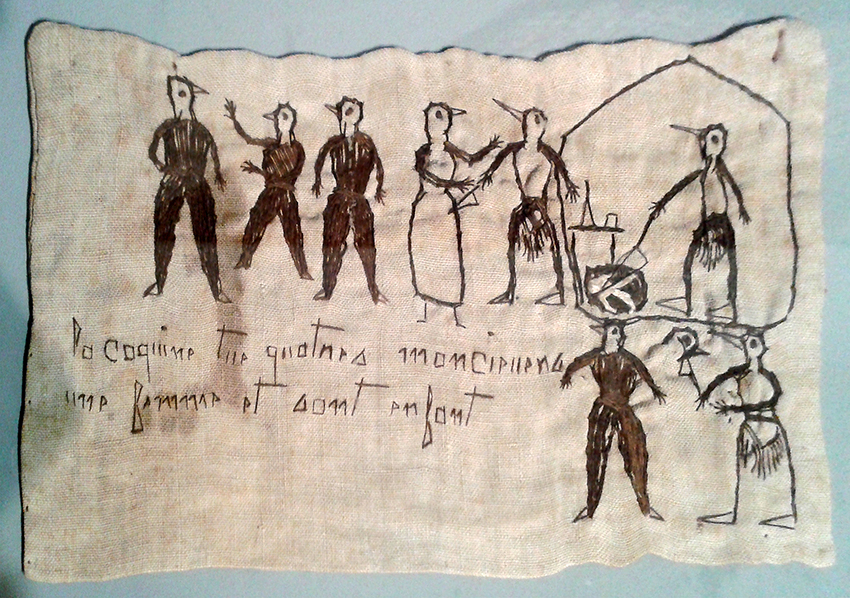 Po coquine tue quatres moncieuens
une femme et sont enfant